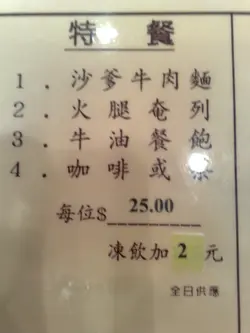 特餐
1. 沙爹牛肉麵
2. 火腿奄列
3. 牛油餐飽
4. 咖啡或茶
每位$ 25.00
凍飲加2元
全日供應